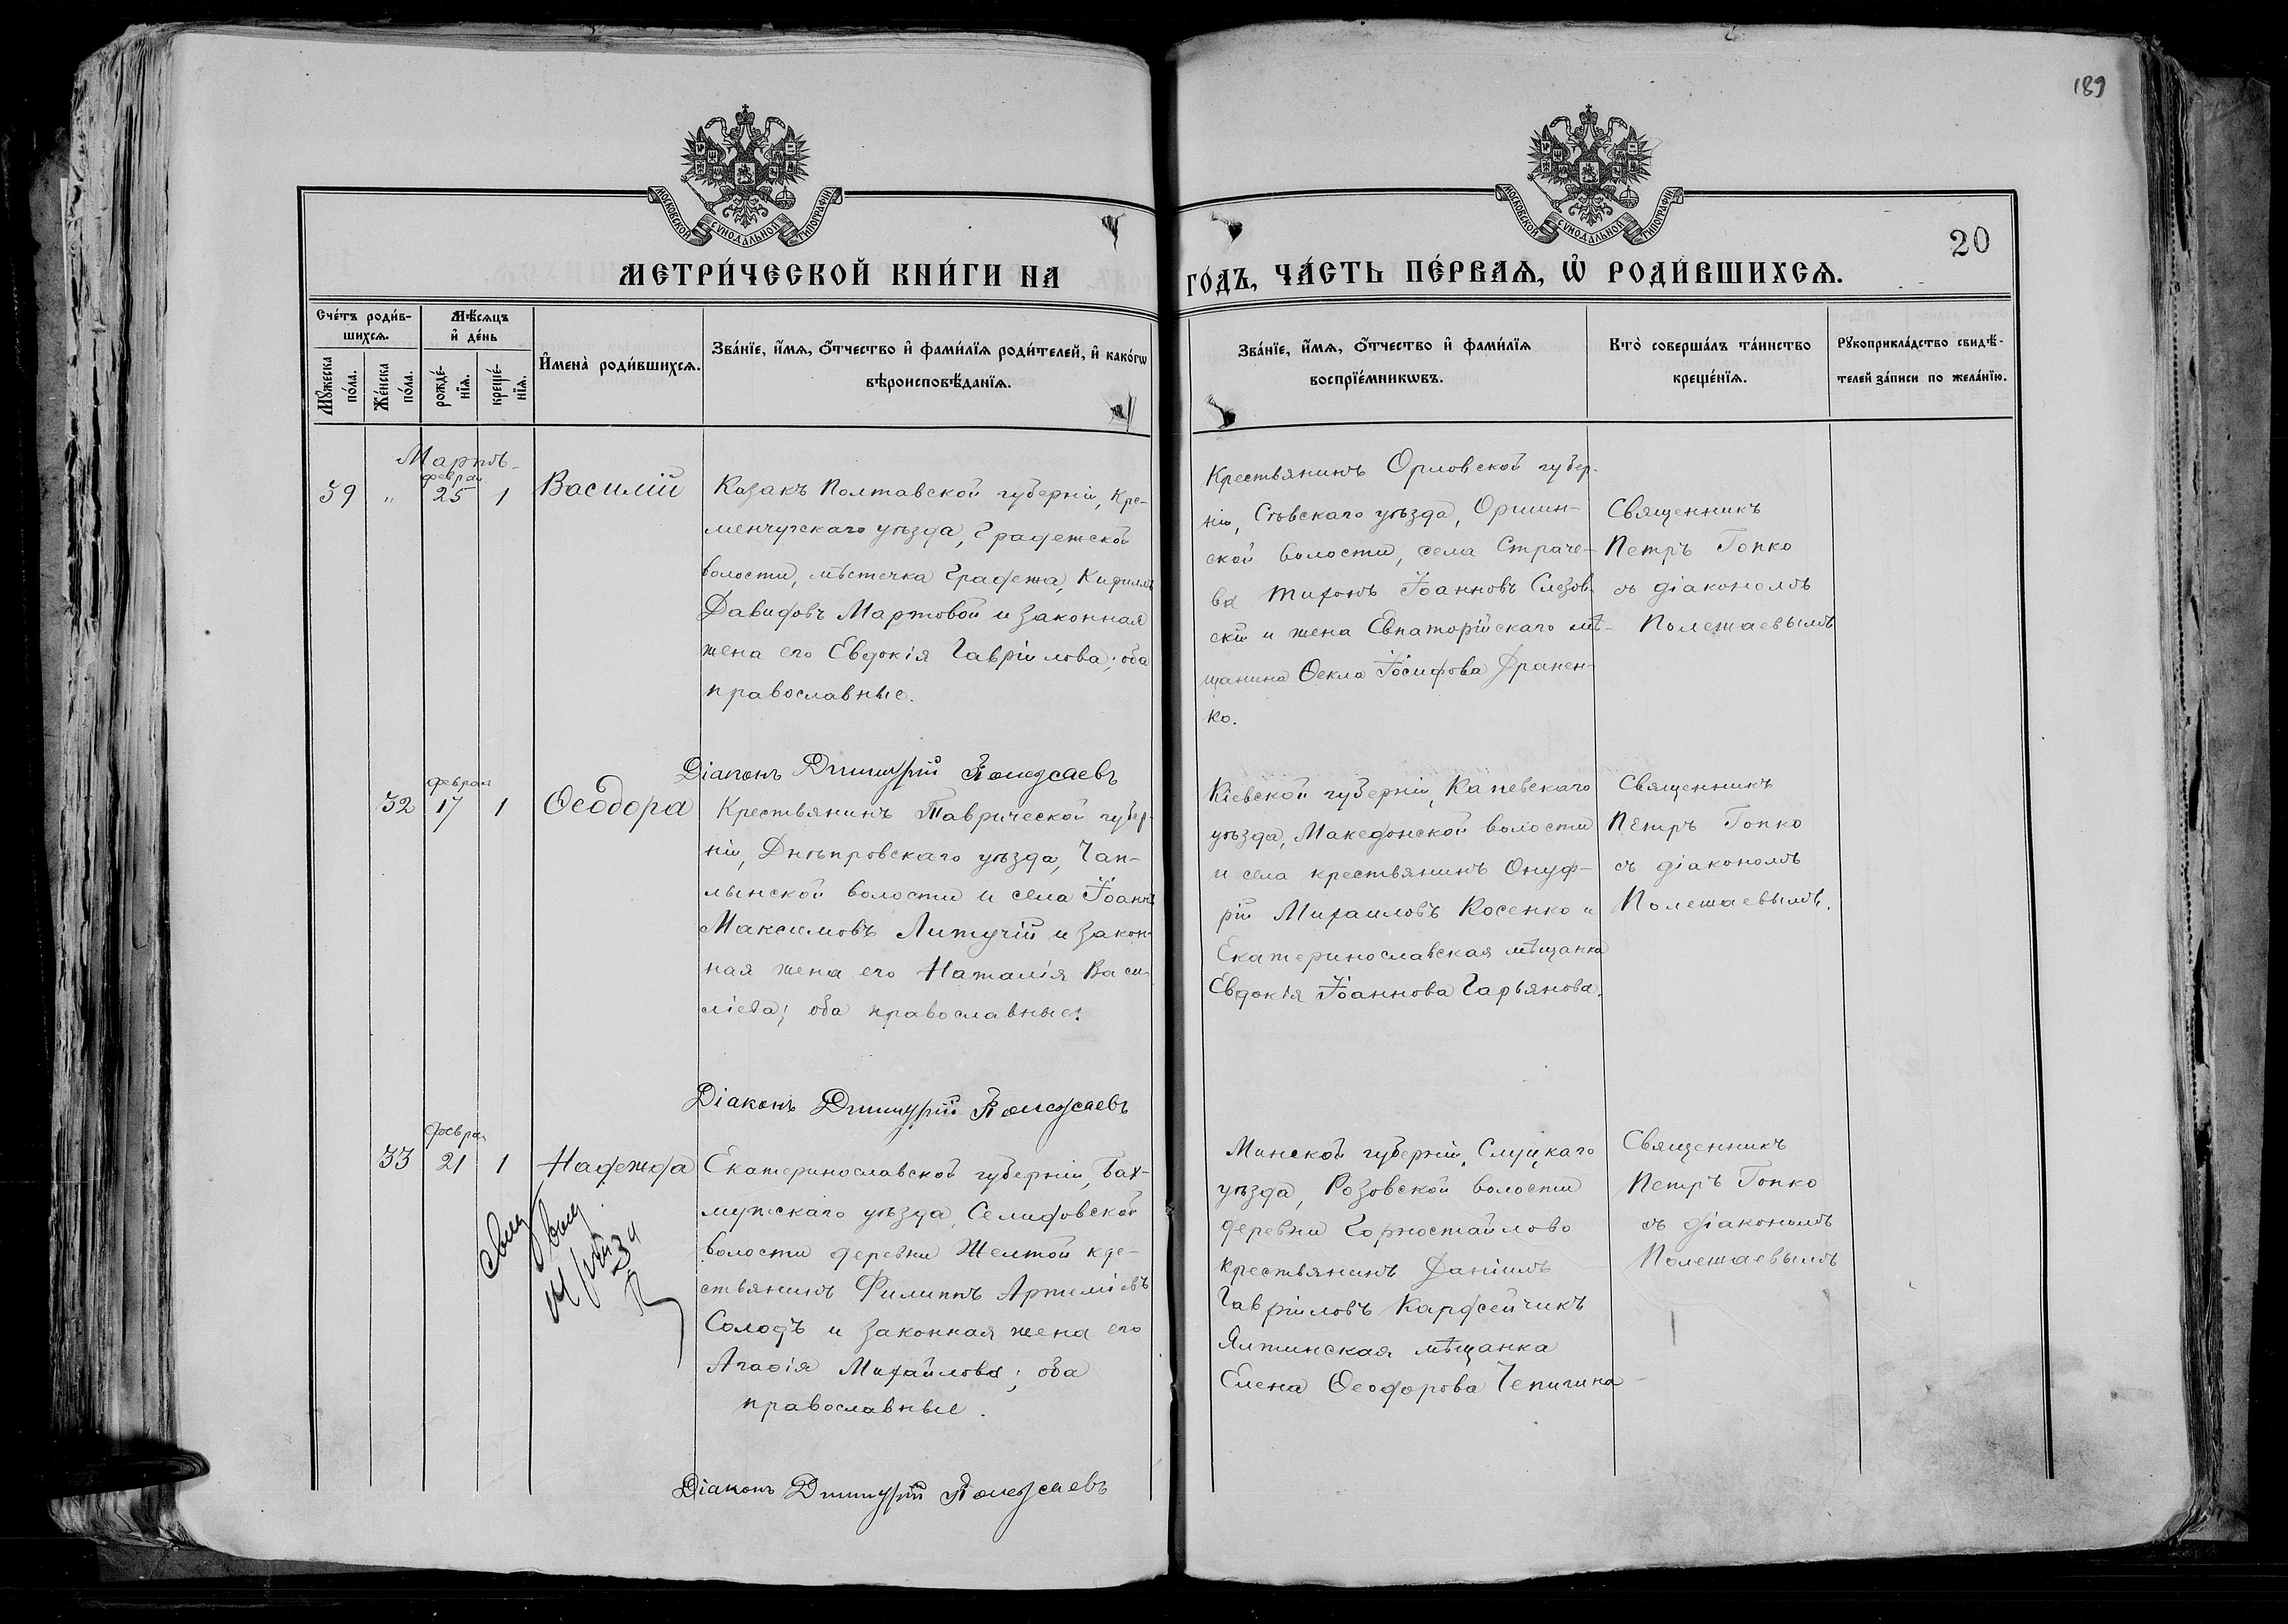 189
МОСКОВСКОЙ СѴНОДАЛЬНОЙ ТИПОГРАФІИ
МОСКОВСКОЙ СѴНОДАЛЬНОЙ ТИПОГРАФІИ
20
МЕТРИ́ЧЕСКОЙ КНИ́ГИ НА ГО́ДЪ, ЧА́СТЬ ПЕ́РВАѦ, Ѡ҆ РОДИ́ВШИХСѦ.
Сче́тъ роди́в-
шихсѧ.
Мꙋ́жеска
по́ла.
Же́нска
по́ла.
Мѣ́сѧцъ
и҆ де́нь
рожде́-
нїѧ.
креще́-
нїѧ.
И҆мена̀ роди́вшихсѧ.
Зва́нїе, и҆́мѧ, ѻ҆́тчество и҆ фами́лїѧ роди́телей, и҆ како́гѡ
вѣроисповѣ́данїѧ.
Зва́нїе, и҆́мѧ, ѻ҆́тчество и҆ фами́лїѧ
воспрїе́мникѡвъ.
Кто̀ соверша́лъ та́инство
креще́нїѧ.
Рꙋкоприкла́дство свидѣ́-
телей за́писи по жела́нїю.
Мартъ
феврал
39 " 25 1 Василій
Казакъ Полтавской губерніи, Кре-
менчугскаго уѣзда, Градежской
волости, мѣстечка Градежа, Кириллъ
Давидовъ Мартовой и законная
жена его Евдокія Гавріилова; оба
православные.
Крестьянинъ Орловской губер-
ніи, Сѣвскаго уѣзда,
ской волости, села Страче-
ва Тихонъ Іоанновъ Слезов-
скій и жена Евпаторійскаго мѣ-
щанина Ѳекла Іосифова Дранен-
ко.
Священникъ
Петръ Гопко
съ діакономъ
Полежаевымъ
Діаконъ Димитрій Полежаевъ
феврал
32 17 1 Ѳеодора
Крестьянинъ Таврической губер-
ніи, Днѣпровскаго уѣзда, Чап-
лынской волости и села Іоаннъ
Максимовъ Литучій и закон-
ная жена его Наталія Васи-
ліева; оба православные.
Кіевской губерніи, Каневскаго
уѣзда, Македонской волости
и села крестьянинъ Онуф-
рій Михаиловъ Косенко и
Екатеринославская мѣщанка
Евдокія Іоаннова Гарьянова.
Священникъ
Петръ Гопко
съ діакономъ
Полежаевымъ.
Діаконъ Димитрій Полежаевъ
феврал
33 21 1 Надежда
Екатеринославской губерніи, Бах-
мутскаго уѣзда, Селидовской
волости деревни Желтой кре-
стьянинъ Филиппъ Артеміевъ
Солодъ и законная жена его
Агаѳія Михайлова; оба
православные.
Минской губерніи, Слуцкаго
уѣзда, Розовской волости
деревни Горностайлово
крестьянинъ Даніилъ
Гавріиловъ Карфсейчикъ
Ялтинская мѣщанка
Елена Ѳеодорова Чепигина
Священникъ
Петръ Гопко
съ діакономъ
Полежаевымъ
Діаконъ Димитрій Полежаевъ